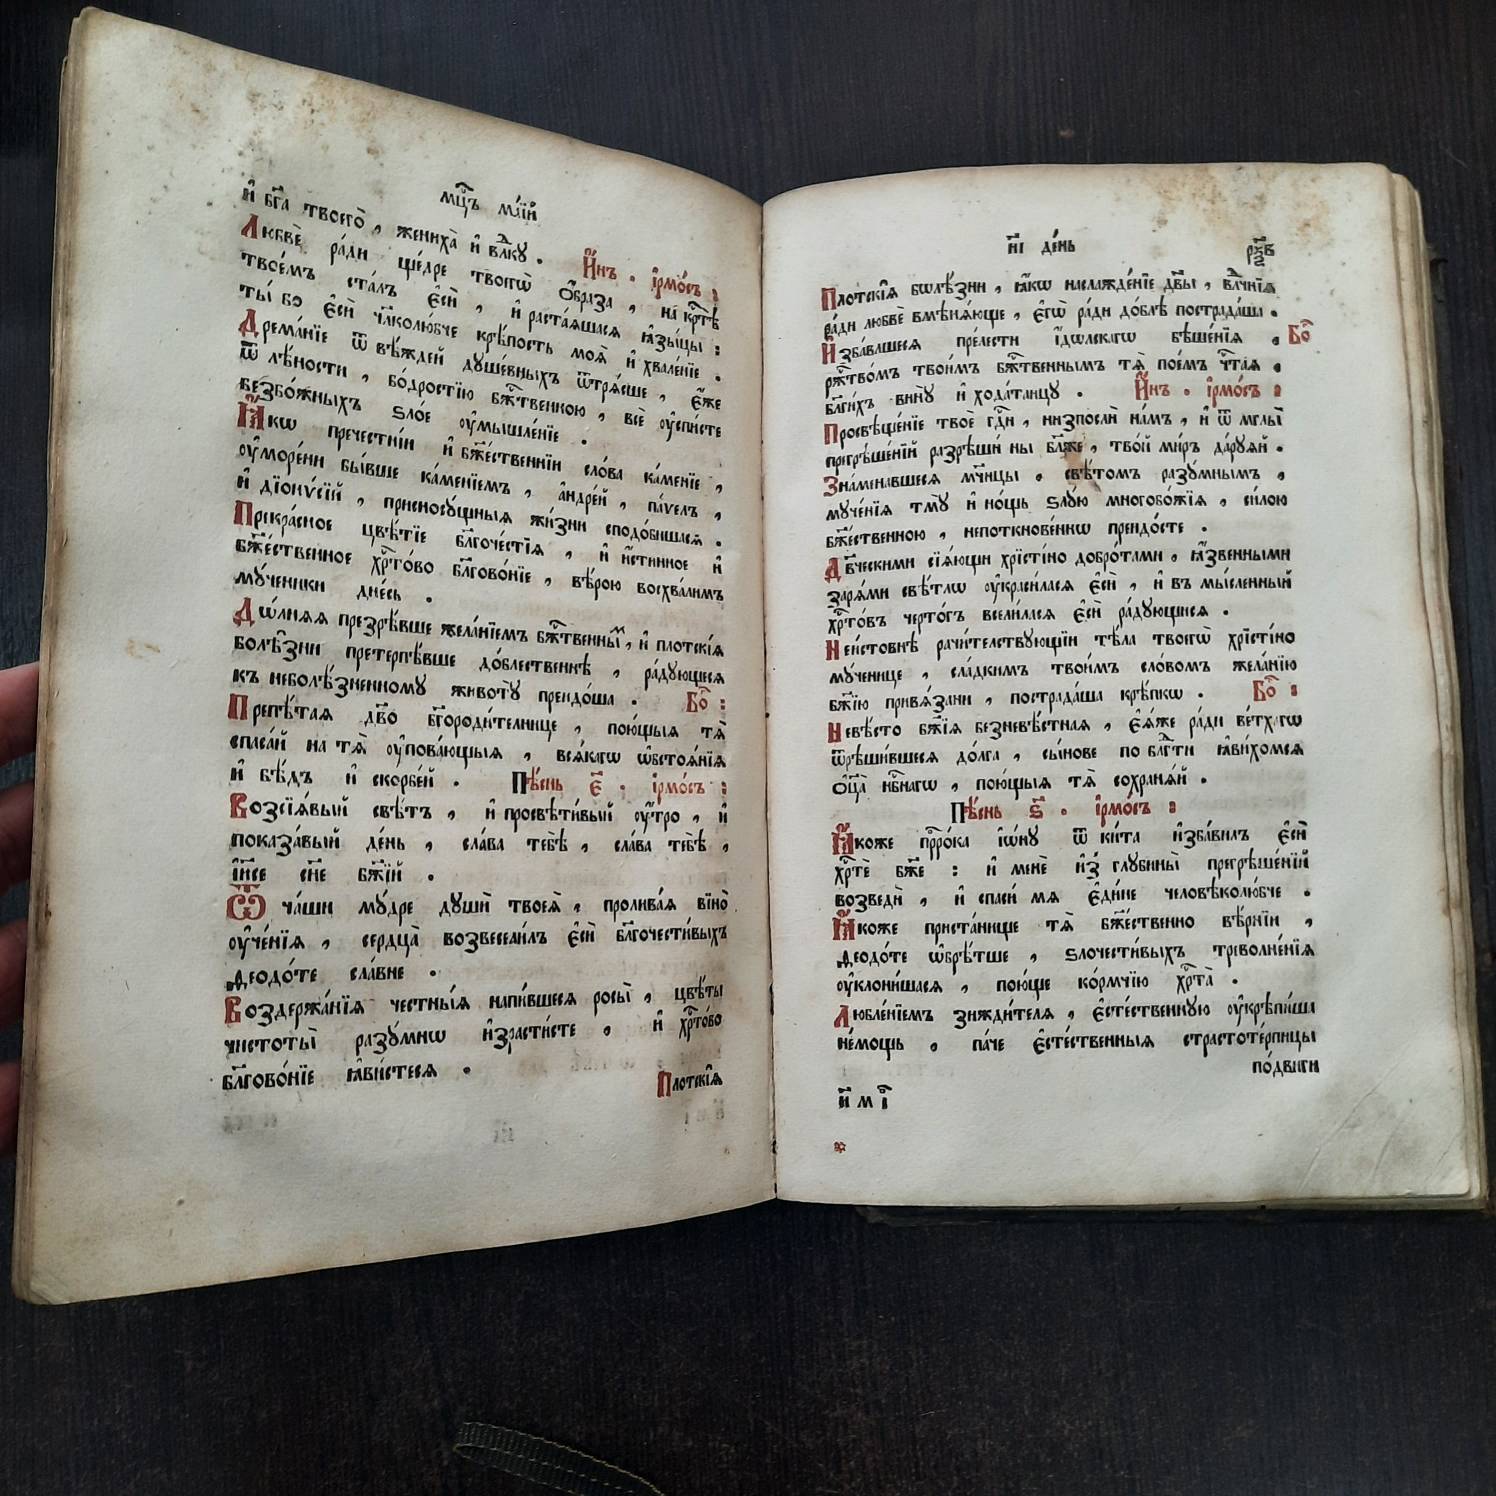 мц҃ъ ма́їй
и҆ бг҃а твоего̀ , жениха̀ и҆ влⷣку .
И҆́нъ . і҆рмо́съ :
Любвѐ ра́ди ще́дре твоегѡ̀ ѻ҆́браза , на крⷭ҇тѣ̀
твое́мъ ста́лъ є҆сѝ , и҆ раста́яшася ꙗ҆зы́цы :
ты́ бо є҆сѝ чл҃колю́бче крѣ́пость моѧ̀ и҆ хвале́нїе .
Дрема́нїе ѿ вѣ́ждей душе́вныхъ ѿтрѧ́сше , є҆́же
ѿ лѣ́ности , бо́дростїю бж҃твенною , всѐ ᲂу҆спи́сте
безбо́жныхъ ѕло́е ᲂу҆мышле́нїе .
Ꙗ҆́кѡ пречестні́и и҆ бж҃е́ственнїи сло́ва ка́менїе ,
ᲂу҆море́ни бы́вше ка́менїемъ , а҆ндре́й , па́ѵелъ ,
и҆ дїонѵ́сїй , присносу́щныя жи́зни сподо́бишася .
Прекра́сное цвѣ́тїе бл҃гоче́стїѧ , и҆ и҆́стинное и҆
бж҃е́ственное хрⷭ҇то́во бл҃гово́нїе , вѣ́рою восхва́лимъ
му́ченики дне́сь .
До́лняя презрѣ́вше жела́нїемъ бж҃твенны́мъ , и҆ пло́тскїя
болѣ̑зни претерпѣ́вше до́блественнѣ , ра́дующеся
къ неболѣ́зненному животу̀ преидо́ша .
Бо҃ :
Препѣ́тая дв҃о бг҃ороди́телнице , пою́щыя тѧ̀
спаса́й на тѧ̀ ᲂу҆пова́ющыя , вся́кагѡ ѡ҆бстоя́нїя
и҆ бѣ́дъ и҆ скорбе́й .
Пѣ́снь є҃ . і҆рмо́съ :
Возсїя́вый свѣ́тъ , и҆ просвѣти́вый ᲂу҆́тро , и҆
показа́вый де́нь , сла́ва тебѣ̀ , сла́ва тебѣ̀ ,
і҆и҃се сн҃е бж҃їй .
Ѿ ча́ши му́дре дꙋшѝ твоеѧ̀ , пролива́я вїно̀
ᲂу҆че́нїя , сердца̀ возвесели́лъ є҆сѝ бл҃гочести́выхъ
ѳеодо́те сла́вне .
Воздержа́нїя честны́я напи́вшеся росы̀ , цвѣ́ты
чистоты̀ разу́мнѡ и҆зрасти́сте , и҆ хрⷭ҇то́во
бл҃гово́нїе ꙗ҆ви́стеся .
Пло́тскїя
и҃і де́нь
рѯ҃в
Пло́тскїя болѣ́зни , ꙗ҆́кѡ наслажде́нїе дв҃ы , влⷣчнїя
ра́ди любвѐ вмѣня́юще , є҆гѡ̀ ра́ди до́блѣ пострада́ша .
И҆зба́вльшеся пре́лести і҆́дѡлскагѡ бѣше́нїя .
Бо҃
рж҃тво́мъ твои́мъ бж҃твеннымъ тѧ̀ пое́мъ чⷭ҇тая .
бл҃ги́хъ вину̀ и҆ хода́таицу .
И҆́нъ . і҆рмо́съ :
Просвѣще́нїе твоѐ гдⷭ҇и , низпослѝ на́мъ , и҆ ѿ мглы̀
прегрѣше́нїй разрѣшѝ ны бл҃же , тво́й ми́ръ да́руяй .
Зна́менавшеся мч҃ницы . свѣ́томъ разу́мнымъ ,
муче́нїя тму̀ и҆ но́щь ѕлу́ю многобо́жїя , си́лою
бж҃е́ственною , непоткнове́ннѡ преидо́сте .
Дв҃ческими сїя́ющи хрїсті́но добро́тами , ꙗ҆́звенными
заря́ми свѣ́тлѡ ᲂу҆краси́лася є҆сѝ , и҆ въ мы́сленный
хрⷭ҇то́въ черто́гъ всели́лася є҆сѝ ра́дующися .
Неи́стовнѣ рачи́телствующїи тѣ́ла твоегѡ̀ хрїсті́но
му́ченице , сла́дкимъ твои́мъ сло́вомъ жела́нїю
бж҃їю привя́зани , пострада́ша крѣ́пкѡ .
Бо҃ :
Невѣ́сто бж҃їя безневѣ́стная , є҆я́же ра́ди ве́тхагѡ
ѿрѣши́вшеся до́лга , сы́нове по бл҃гⷣти ꙗ҆ви́хомся
ѻ҆ц҃а̀ нбⷭ҇нагѡ , пою́щыя тѧ̀ сохраня́й .
Пѣ́снь ѕ҃ . і҆рмо́съ :
Ꙗ҆́коже прⷪ҇ро́ка і҆ѡ́ну ѿ ки́та и҆зба́вилъ є҆сѝ
хрⷭ҇тѐ бж҃е : и҆ менѐ и҆з̾ глубины̀ прегрѣше́нїй
возведѝ , и҆ спаси́ мя є҆ди́не человѣколю́бче .
Ꙗ҆́коже приста́нище тѧ̀ бж҃е́ственно вѣ́рнїи ,
ѳеодо́те ѡ҆брѣ́тше , ѕлочести́выхъ треволне́нїя
ᲂу҆клони́шася , пою́ще ко́рмчїю хрⷭ҇та̀ .
Любле́нїемъ зижди́теля , є҆сте́ственную ᲂу҆крѣпи́ша
не́мощь , па́че є҆сте́ственныя страстоте́рпицы
по́двиги
и҃ м і҃